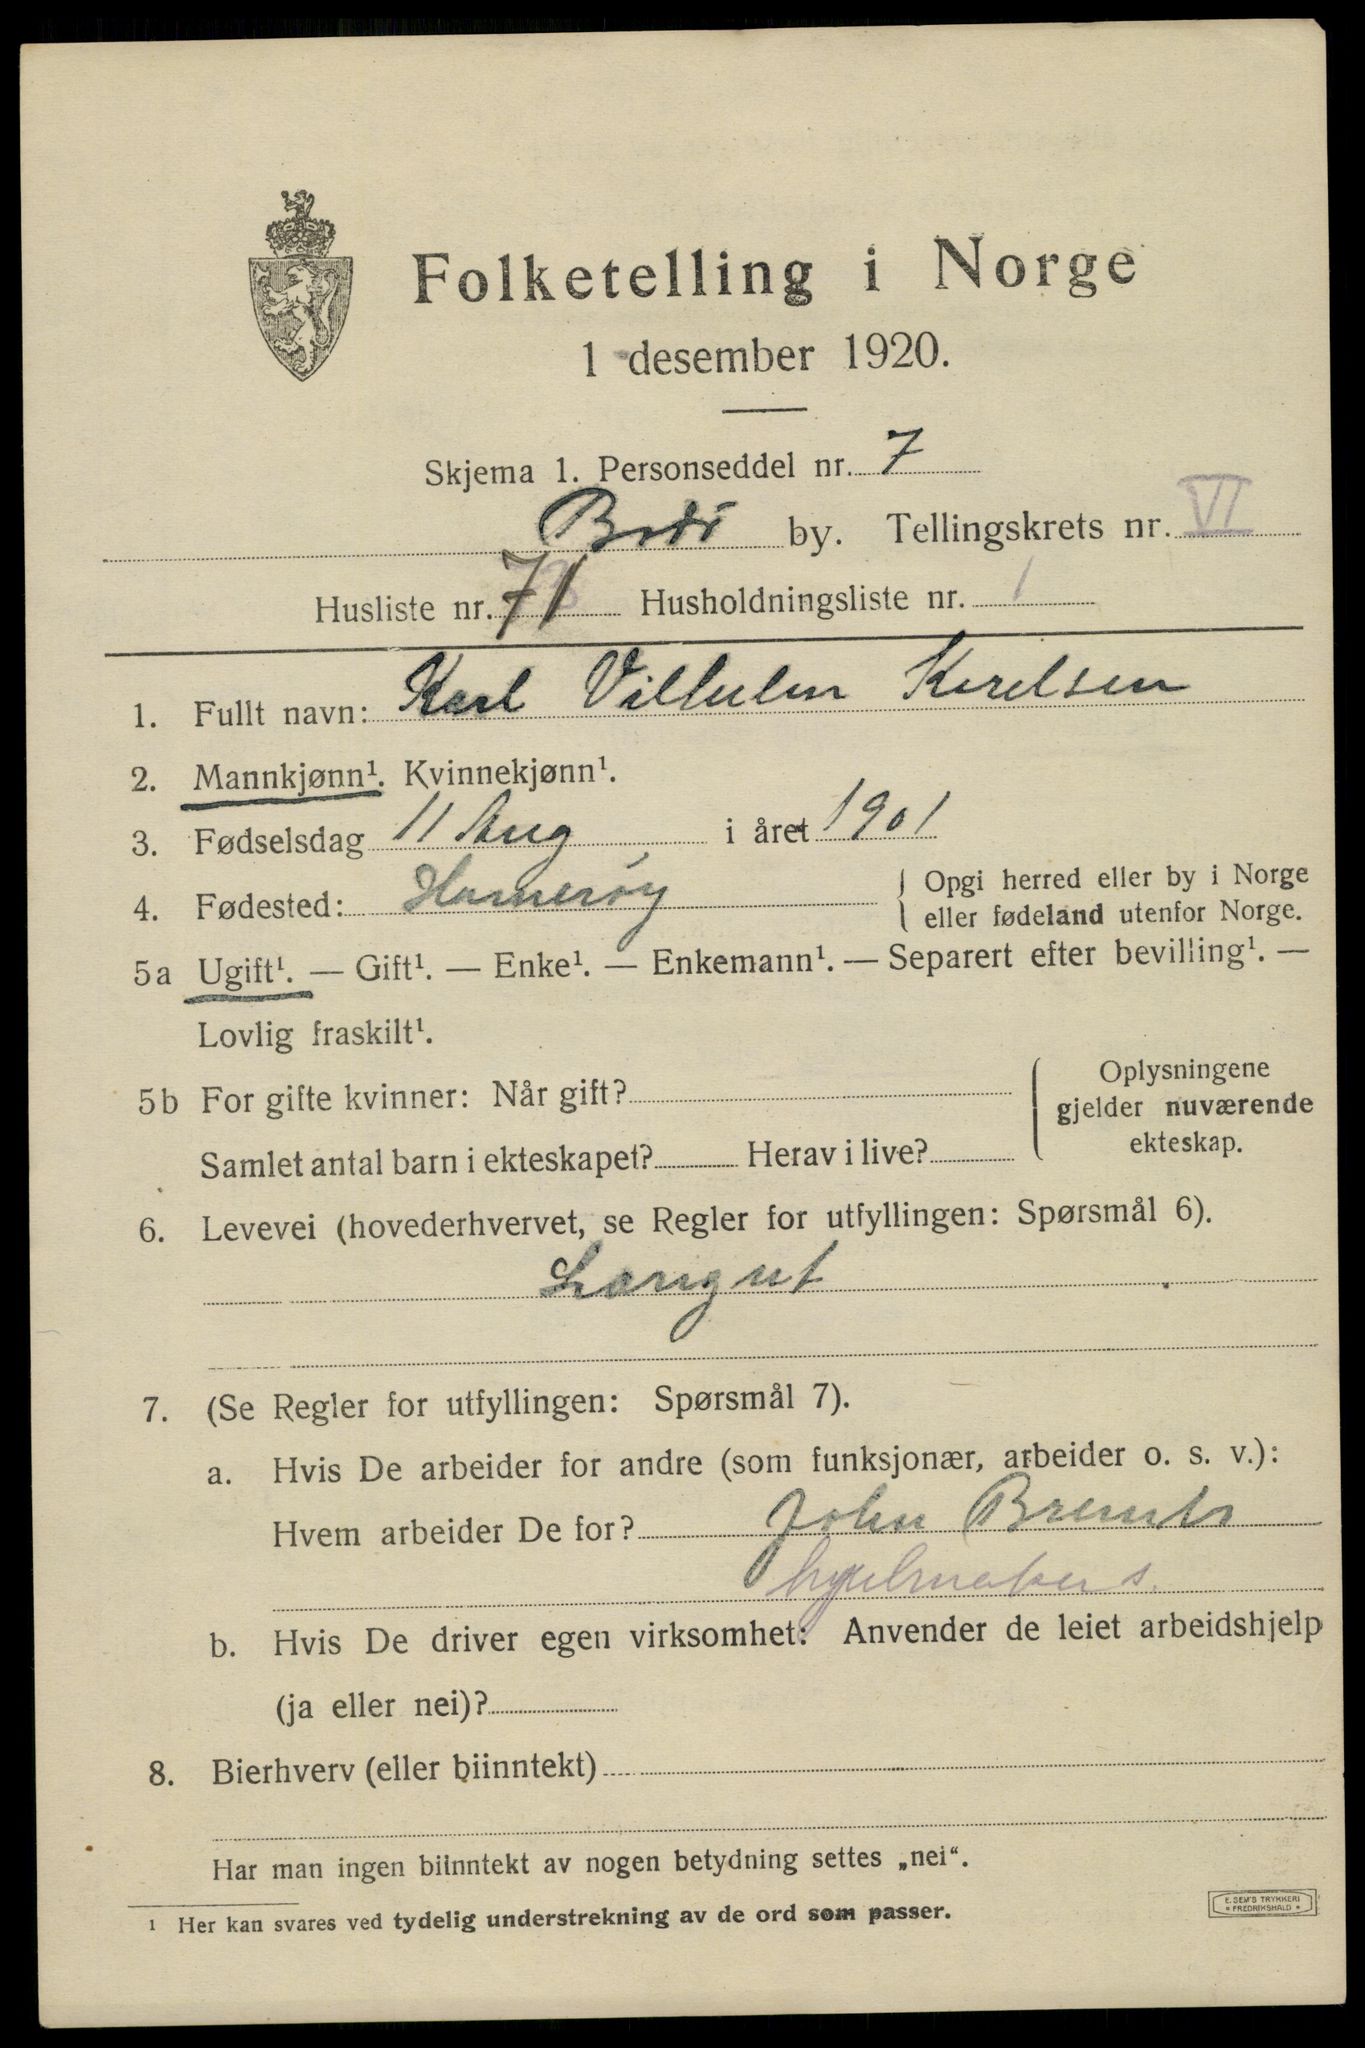 Folketelling i Norge
1 desember 1920.
Skjema 1. Personseddel nr. 7
Bodö by. Tellingskrets nr. VI
Husliste nr. 71 Husholdningsliste nr. 1
1. Fullt navn: Karl Vilhelm Karelsen
2. Mannkjønn¹. Kvinnekjønn¹.
3. Fødselsdag 11 Aug i året 1901
4. Fødested: Hamerøy { Opgi herred eller by i Norge
eller fødeland utenfor Norge.
5a Ugift¹. — Gift¹. — Enke¹. — Enkemann¹. — Separert efter bevilling¹. —
Lovlig fraskilt¹.
5b For gifte kvinner: Når gift?
Samlet antal barn i ekteskapet? Herav i live?
{ Oplysningene
gjelder nuværende
ekteskap.
6. Levevei (hovederhvervet, se Regler for utfyllingen: Spørsmål 6).
Lærigut
7. (Se Regler for utfyllingen: Spørsmål 7).
a. Hvis De arbeider for andre (som funksjonær, arbeider o. s. v.):
Hvem arbeider De for? John
b. Hvis De driver egen virksomhet: Anvender de leiet arbeidshjelp
(ja eller nei)?
8. Bierhverv (eller biinntekt)
Har man ingen biinntekt av nogen betydning settes „nei“.
¹ Her kan svares ved tydelig understrekning av de ord som passer.
E. SEM'S TRYKKERI
* FREDRIKSHALD *